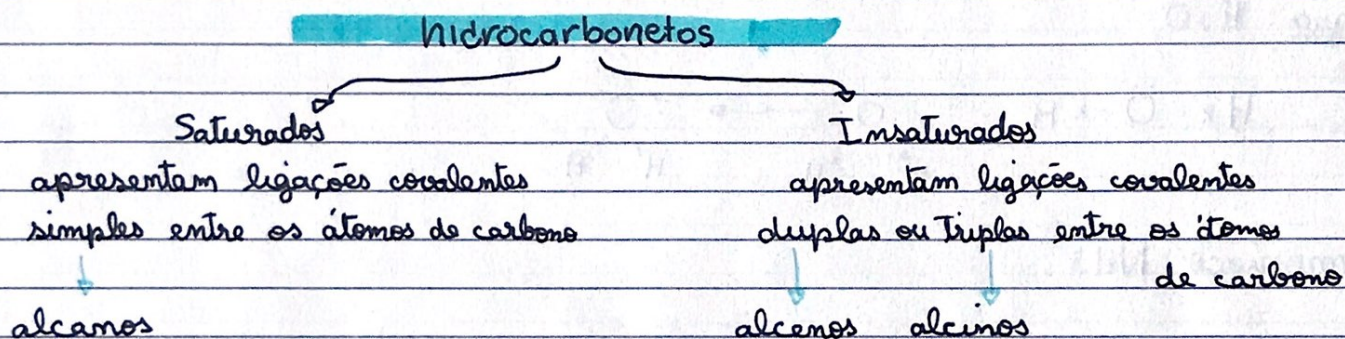 hidrocarbonetos
Saturados
apresentam ligações covalentes
simples entre os átomos de carbono
alcanos
Insaturados
apresentam ligações covalentes
duplas ou Triplas entre os átomos
de carbono
alcenos alcinos